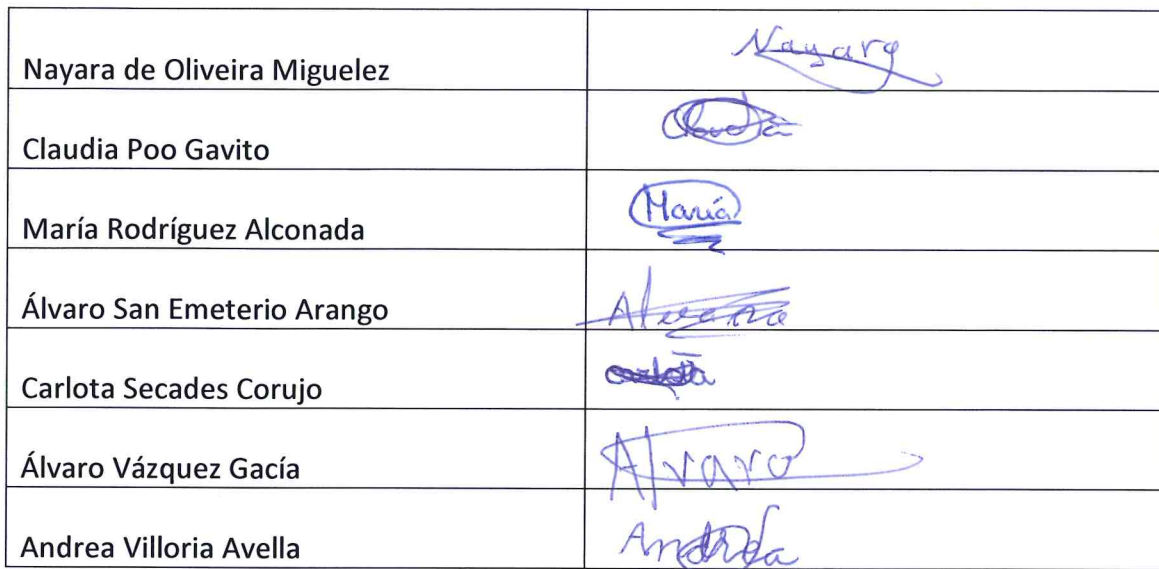 Nayara de Oliveira Miguelez Nayara
Claudia Poo Gavito Claudia
María Rodríguez Alconada María
Álvaro San Emeterio Arango Alvaro
Carlota Secades Corujo carlota
Álvaro Vázquez Gacía Alvaro
Andrea Villoria Avella Andrea